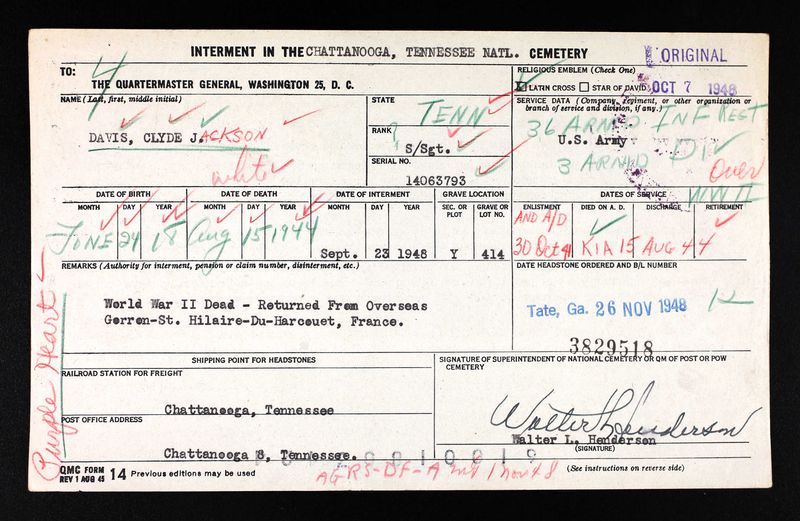 INTERMENT IN THE CHATTANOOGA, TENNESSEE NATL. CEMETERY
ORIGINAL
TO:
4
THE QUARTERMASTER GENERAL, WASHINGTON 25, D. C.
RELIGIOUS EMBLEM (Check One)
LATIN CROSS STAR OF DAVID
OCT 7 1948
NAME (Last, first, middle initial)
DAVIS, CLYDE JACKSON
white
STATE
TENN
RANK
S/Sgt.
SERIAL NO.
14063793
SERVICE DATA (Company, regiment, or other organization or branch of service and division, if any.)
36 ARMD INF REGT
U.S. Army
3 ARMD DIV
Over
WW II
DATE OF BIRTH
MONTH DAY YEAR
JUNE 24 18
DATE OF DEATH
MONTH DAY YEAR
Aug 15 1944
DATE OF INTERMENT
MONTH DAY YEAR
Sept. 23 1948
GRAVE LOCATION
SEC. OR PLOT GRAVE OR LOT NO.
Y 414
DATES OF SERVICE
ENLISTMENT DIED ON A. D. DISCHARGE RETIREMENT
AND A/D
30 Oct 41 KIA 15 AUG 44
REMARKS (Authority for interment, pension or claim number, disinterment, etc.)
World War II Dead - Returned From Overseas
Gorron-St. Hilaire-Du-Harcouet, France.
Purple Heart
DATE HEADSTONE ORDERED AND B/L NUMBER
Tate, Ga. 26 NOV 1948
3829518
SHIPPING POINT FOR HEADSTONES
RAILROAD STATION FOR FREIGHT
Chattanooga, Tennessee
POST OFFICE ADDRESS
Chattanooga 8, Tennessee.
SIGNATURE OF SUPERINTENDENT OF NATIONAL CEMETERY OR QM OF POST OR POW CEMETERY
Walter L Henderson
Walter L. Henderson
(SIGNATURE)
QMC FORM
REV 1 AUG 45 14 Previous editions may be used
AGRS-DF-A
1 Nov 48
(See instructions on reverse side)